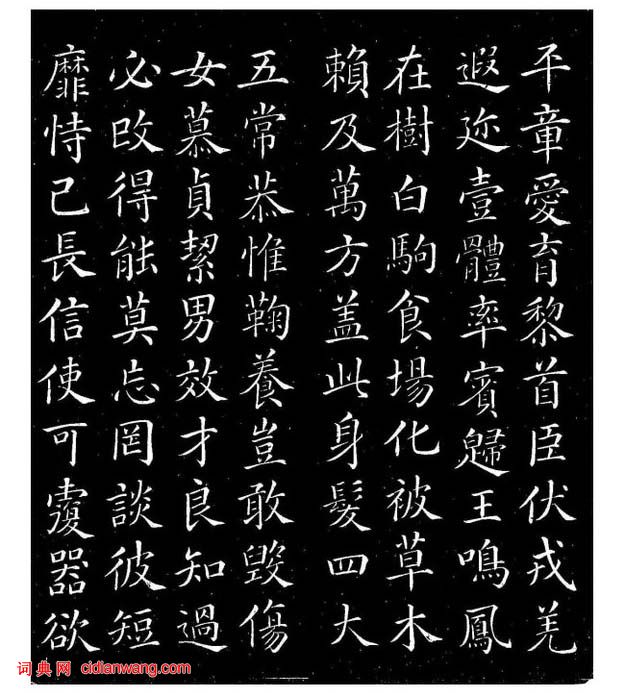 平章愛育黎首臣伏戎羌
遐迩壹體率賓歸王鳴鳳
在樹白駒食場化被草木
賴及萬方盖此身髮四大
五常恭惟鞠養豈敢毀傷
女慕貞絜男效才良知過
必改得能莫忘罔談彼短
靡恃己長信使可覆器欲
词典网 cidianwang.com